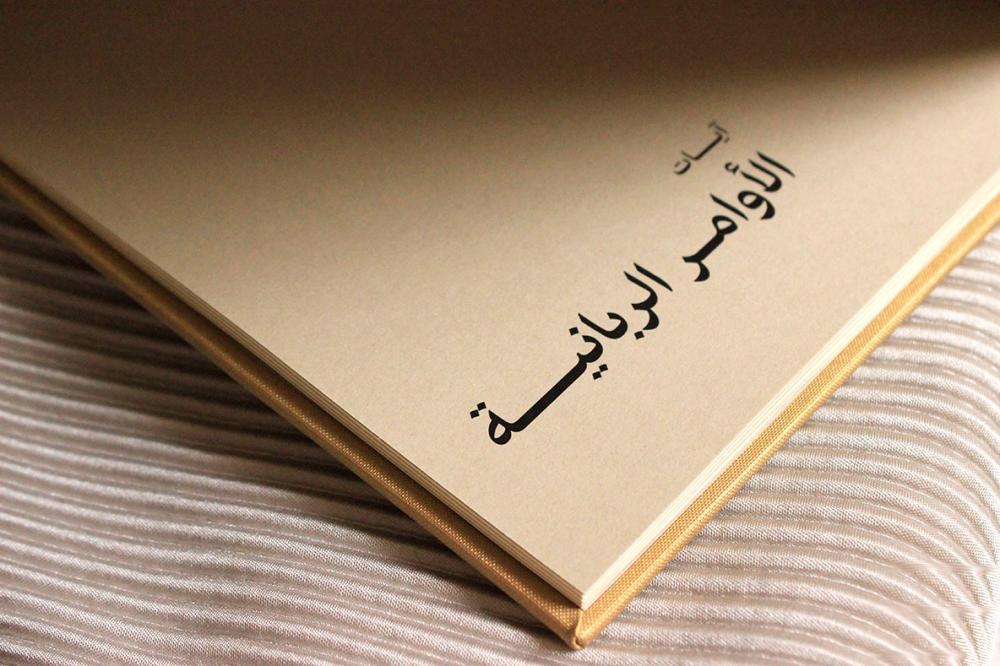 آيــات
الأوامر الربانيــة